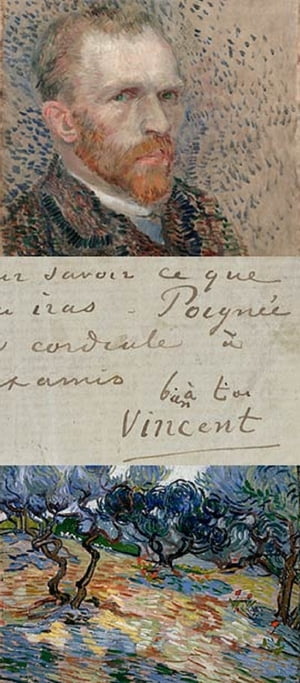 ur savoir ce que
u iras - Poignée
cordiale à
amis
bien à toi
Vincent